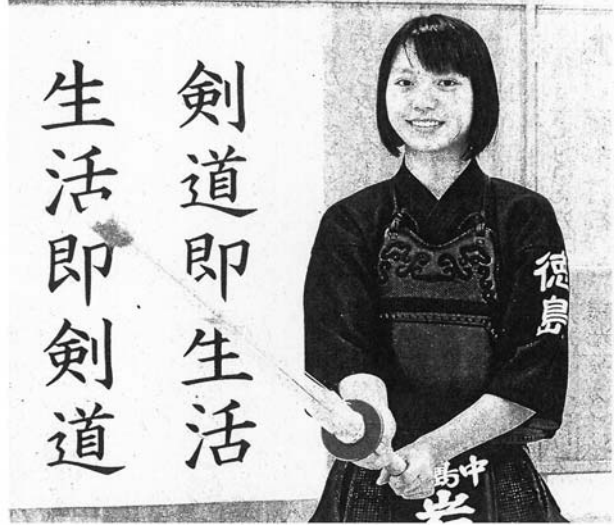 剣道即生活
生活即剣道
徳島
中